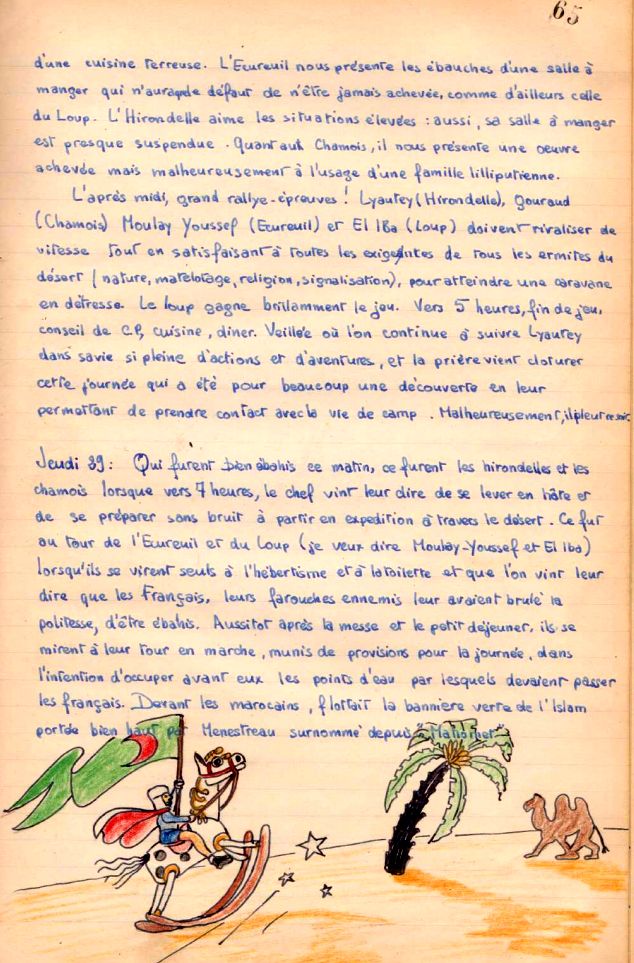 65
d'une cuisine terreuse. L'Ecureuil nous présente les ébauches d'une salle à
manger qui n'aura que le défaut de n'être jamais achevée, comme d'ailleurs celle
du Loup. L'Hirondelle aime les situations élevées : aussi, sa salle à manger
est presque suspendue. Quant auk Chamois, il nous présente une oeuvre
achevée mais malheureusement à l'usage d'une famille lilliputienne.
L'après midi, grand rallye-épreuves ! Lyautey (Hirondelle), Gouraud
(Chamois) Moulay Youssef (Ecureuil) et El Iba (Loup) doivent rivaliser de
vitesse tout en satisfaisant à toutes les exigeantes de tous les ermites du
désert (nature, matelotage, religion, signalisation), pour atteindre une caravane
en détresse. Le loup gagne brillamment le jeu. Vers 5 heures, fin de jeu,
conseil de C.P, cuisine, diner. Veillée où l'on continue à suivre Lyautey
dans sa vie si pleine d'actions et d'aventures, et la prière vient cloturer
cette journée qui a été pour beaucoup une découverte en leur
permettant de prendre contact avec la vie de camp. Malheureusement, il pleut ce soir.
Jeudi 29 : Qui furent bien ébahis ce matin, ce furent les hirondelles et les
chamois lorsque vers 7 heures, le chef vint leur dire de se lever en hâte et
de se préparer sans bruit à partir en expedition à travers le désert. Ce fut
au tour de l'Ecureuil et du Loup (je veux dire Moulay-Youssef et El Iba)
lorsqu'ils se virent seuls à l'hébertisme et à la toilette et que l'on vint leur
dire que les Français, leurs farouches ennemis leur avaient brulé la
politesse, d'être ébahis. Aussitot après la messe et le petit dejeuner, ils se
mirent à leur tour en marche, munis de provisions pour la journée, dans
l'intention d'occuper avant eux les points d'eau par lesquels devaient passer
les français. Devant les marocains, flottait la bannière verte de l'Islam
portée bien haut par Menestreau surnommé depuis "Mahomet"